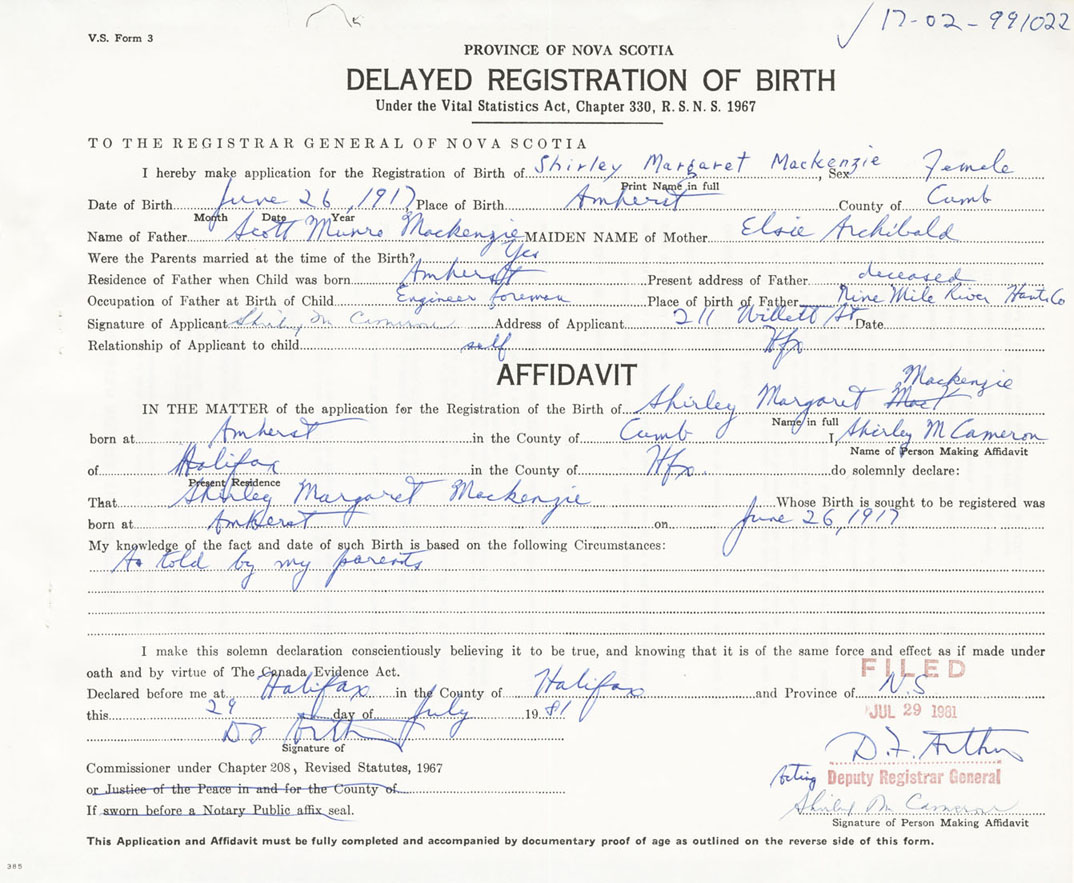 17-02-991022
V.S. Form 3
PROVINCE OF NOVA SCOTIA
DELAYED REGISTRATION OF BIRTH
Under the Vital Statistics Act, Chapter 330, R.S.N.S. 1967
TO THE REGISTRAR GENERAL OF NOVA SCOTIA
I hereby make application for the Registration of Birth of Shirley Margaret Mackenzie, Sex Female
Print Name in full
Date of Birth June 26, 1917 Place of Birth Amherst County of Cumb
Month Date Year
Name of Father Scott Munro Mackenzie MAIDEN NAME of Mother Elsie Archibald
Were the Parents married at the time of the Birth? Yes
Residence of Father when Child was born Amherst Present address of Father deceased
Occupation of Father at Birth of Child Engineer foreman Place of birth of Father Nine Mile River Hants Co
Signature of Applicant Shirley M Cameron Address of Applicant 211 Willett St Date
Relationship of Applicant to child self Hfx
AFFIDAVIT
Mackenzie
IN THE MATTER of the application for the Registration of the Birth of Shirley Margaret
Name in full
born at Amherst in the County of Cumb I, Shirley M Cameron
Name of Person Making Affidavit
of Halifax in the County of Hfx do solemnly declare:
Present Residence
That Shirley Margaret Mackenzie Whose Birth is sought to be registered was
born at Amherst on June 26, 1917
My knowledge of the fact and date of such Birth is based on the following Circumstances:
As told by my parents
I make this solemn declaration conscientiously believing it to be true, and knowing that it is of the same force and effect as if made under
oath and by virtue of The Canada Evidence Act.
FILED
Declared before me at Halifax in the County of Halifax and Province of N.S
this 29 day of July 1981
JUL 29 1981
D F Arthur
Signature of
D.F. Arthur
Commissioner under Chapter 208, Revised Statutes, 1967
Acting Deputy Registrar General
or Justice of the Peace in and for the County of
Shirley M Cameron
If sworn before a Notary Public affix seal.
Signature of Person Making Affidavit
This Application and Affidavit must be fully completed and accompanied by documentary proof of age as outlined on the reverse side of this form.
385